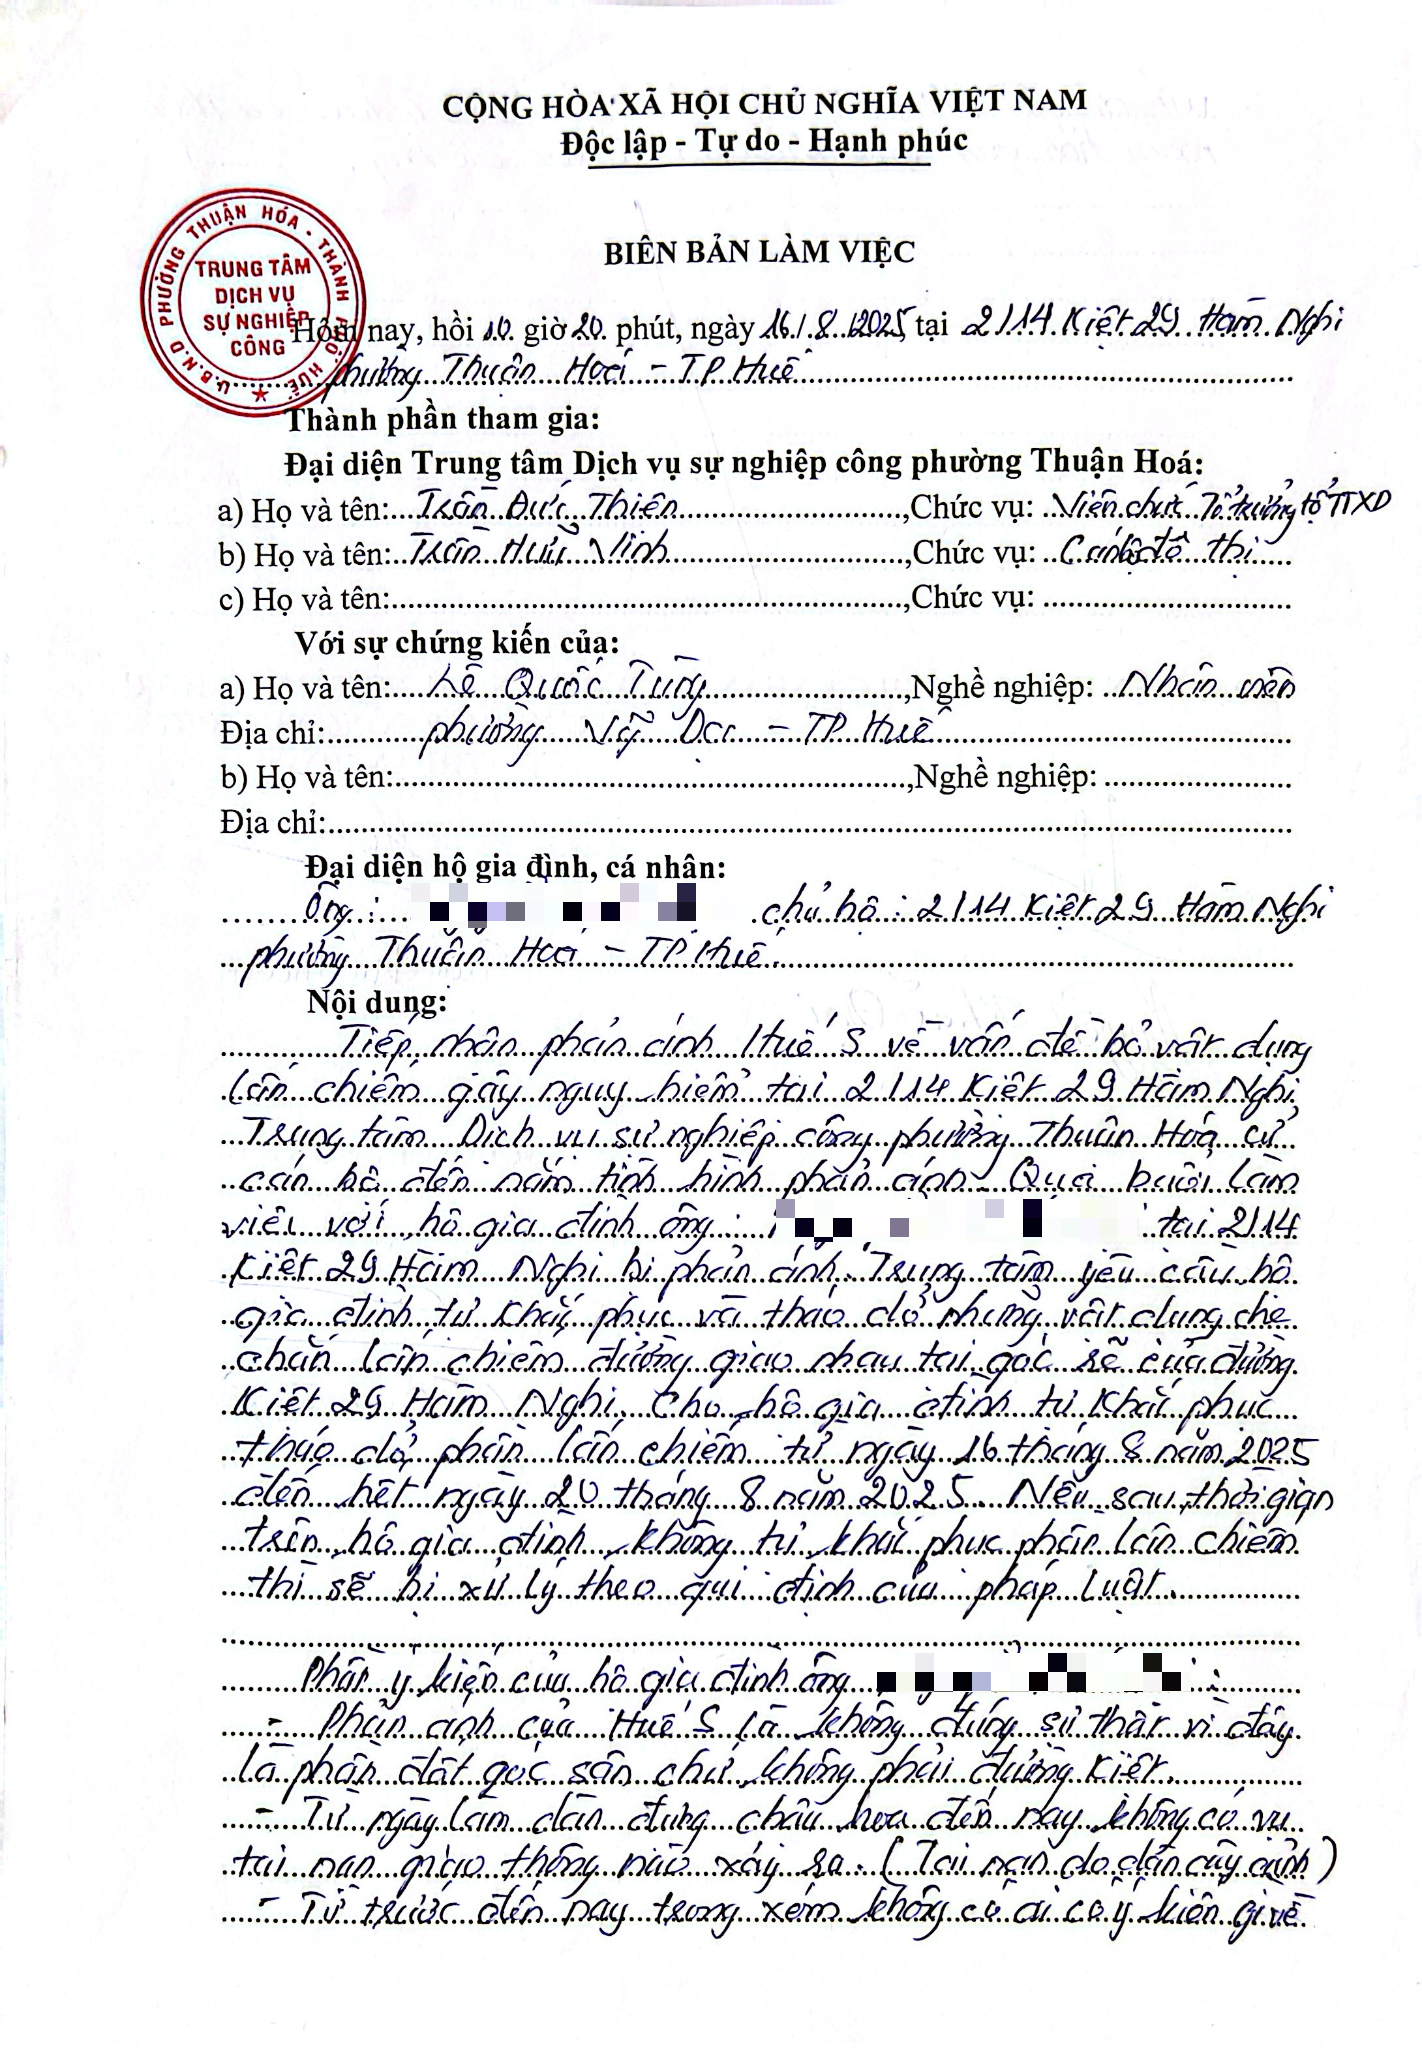 CỘNG HÒA XÃ HỘI CHỦ NGHĨA VIỆT NAM
Độc lập - Tự do - Hạnh phúc
U.B.N.D PHƯỜNG THUẬN HÓA - THÀNH PHỐ HUẾ
TRUNG TÂM
DỊCH VỤ
SỰ NGHIỆP
CÔNG
BIÊN BẢN LÀM VIỆC
Hôm nay, hồi 10 giờ 20 phút, ngày 16/8/2025, tại 2/114 Kiệt 29 Hàm Nghi
phường Thuận Hoá - TP Huế
Thành phần tham gia:
Đại diện Trung tâm Dịch vụ sự nghiệp công phường Thuận Hoá:
a) Họ và tên: Trần Đức Thiên, Chức vụ: Viên chức Tổ trưởng tổ TTXD
b) Họ và tên: Trần Hữu Vinh, Chức vụ: Cán bộ đô thị
c) Họ và tên:, Chức vụ:
Với sự chứng kiến của:
a) Họ và tên: Lê Quốc Tùng, Nghề nghiệp: Nhân viên
Địa chỉ: phường Vỹ Dạ - TP Huế
b) Họ và tên:, Nghề nghiệp:
Địa chỉ:
Đại diện hộ gia đình, cá nhân:
Ông: chủ hộ: 2/114 Kiệt 29 Hàm Nghi
phường Thuận Hoá - TP Huế.
Nội dung:
Tiếp nhận phản ánh Huế S về vấn đề bỏ vật dụng
lấn chiếm gây nguy hiểm tại 2/114 Kiệt 29 Hàm Nghi
Trung tâm Dịch vụ sự nghiệp công phường Thuận Hoá cử
cán bộ đến nắm tình hình phản ánh. Qua buổi làm
việc với hộ gia đình ông: tại 2/114
Kiệt 29 Hàm Nghi bị phản ánh. Trung tâm yêu cầu hộ
gia đình tự khắc phục và tháo dở những vật dụng che
chắn lấn chiếm đường giao nhau tại góc rẽ của đường
Kiệt 29 Hàm Nghi. Cho hộ gia đình tự khắc phục
tháo dở phần lấn chiếm từ ngày 16 tháng 8 năm 2025
đến hết ngày 20 tháng 8 năm 2025. Nếu sau thời gian
trên hộ gia đình không tự khắc phục phần lấn chiếm
thì sẽ bị xử lý theo qui định của pháp luật.
Phần ý kiến của hộ gia đình ông :
- Phản ánh của Huế S là không đúng sự thật vì đây
là phần đất góc sân chứ không phải đường kiệt.
- Từ ngày làm dàn đựng chậu hoa đến nay không có vụ
tai nạn giao thông nào xảy ra. (Tai nạn do dàn cây cảnh)
- Từ trước đến nay trong xóm không có ai có ý kiến gì về